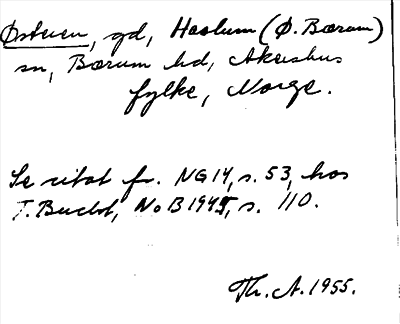 Østeren, gd, Haslum (Ø. Bærum)
sn, Bærum hd, Akershus
fylke, Norge.
Se citat fr. NG 14, s. 53, hos
T. Bucht, NoB 1945, s. 110.
Th. A. 1955.